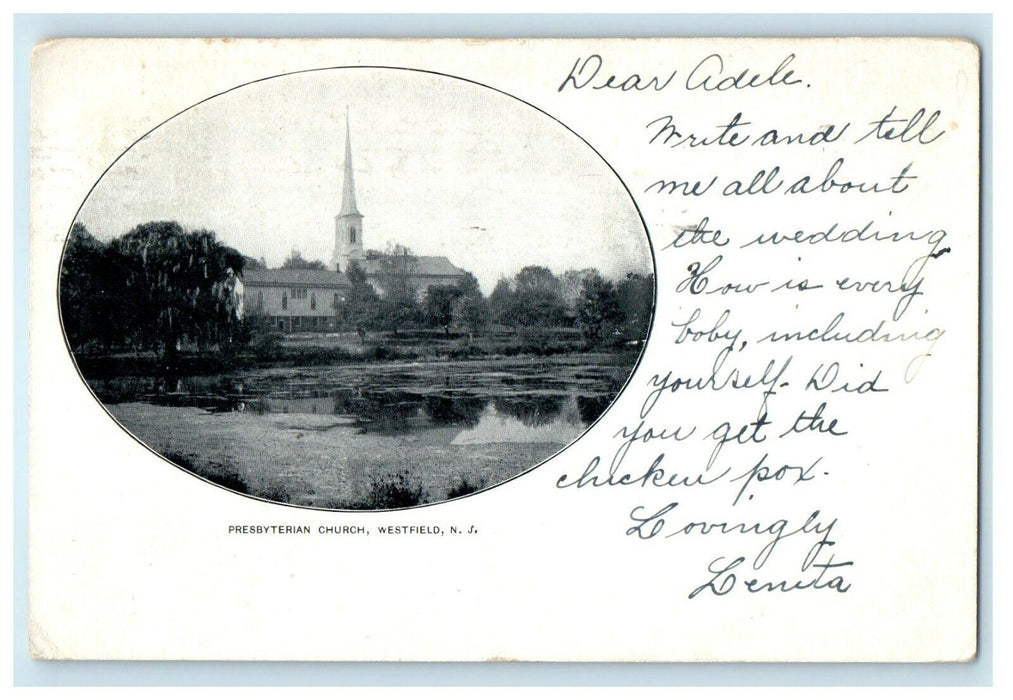 Dear Adele.
Write and tell
me all about
the wedding
How is every
boby, including
yourself. Did
you get the
chicken pox.
Lovingly
Lenita
PRESBYTERIAN CHURCH, WESTFIELD, N. J.